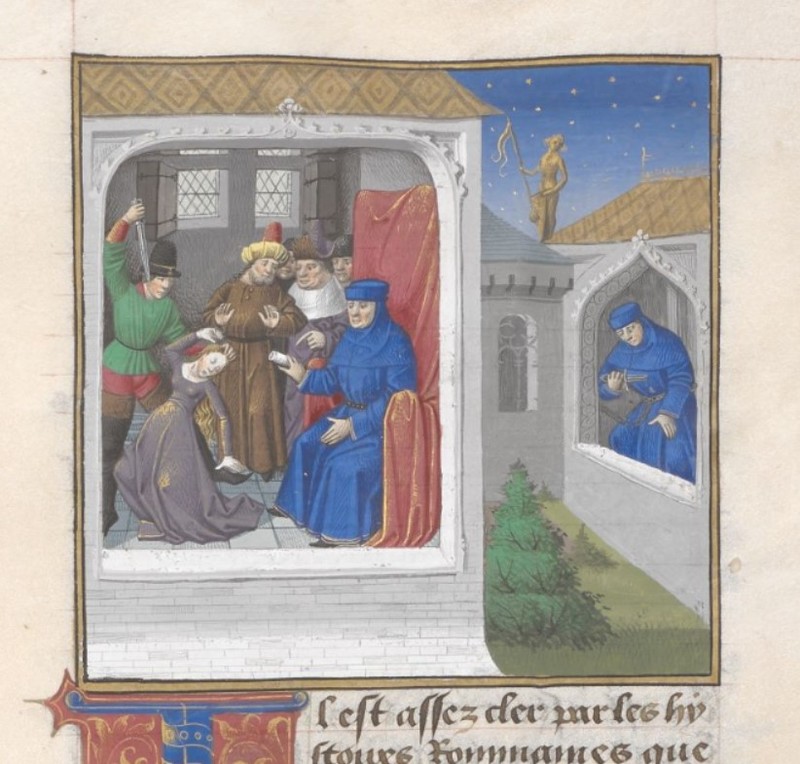 Il est assez cler par les hy
stoires Rommaines que